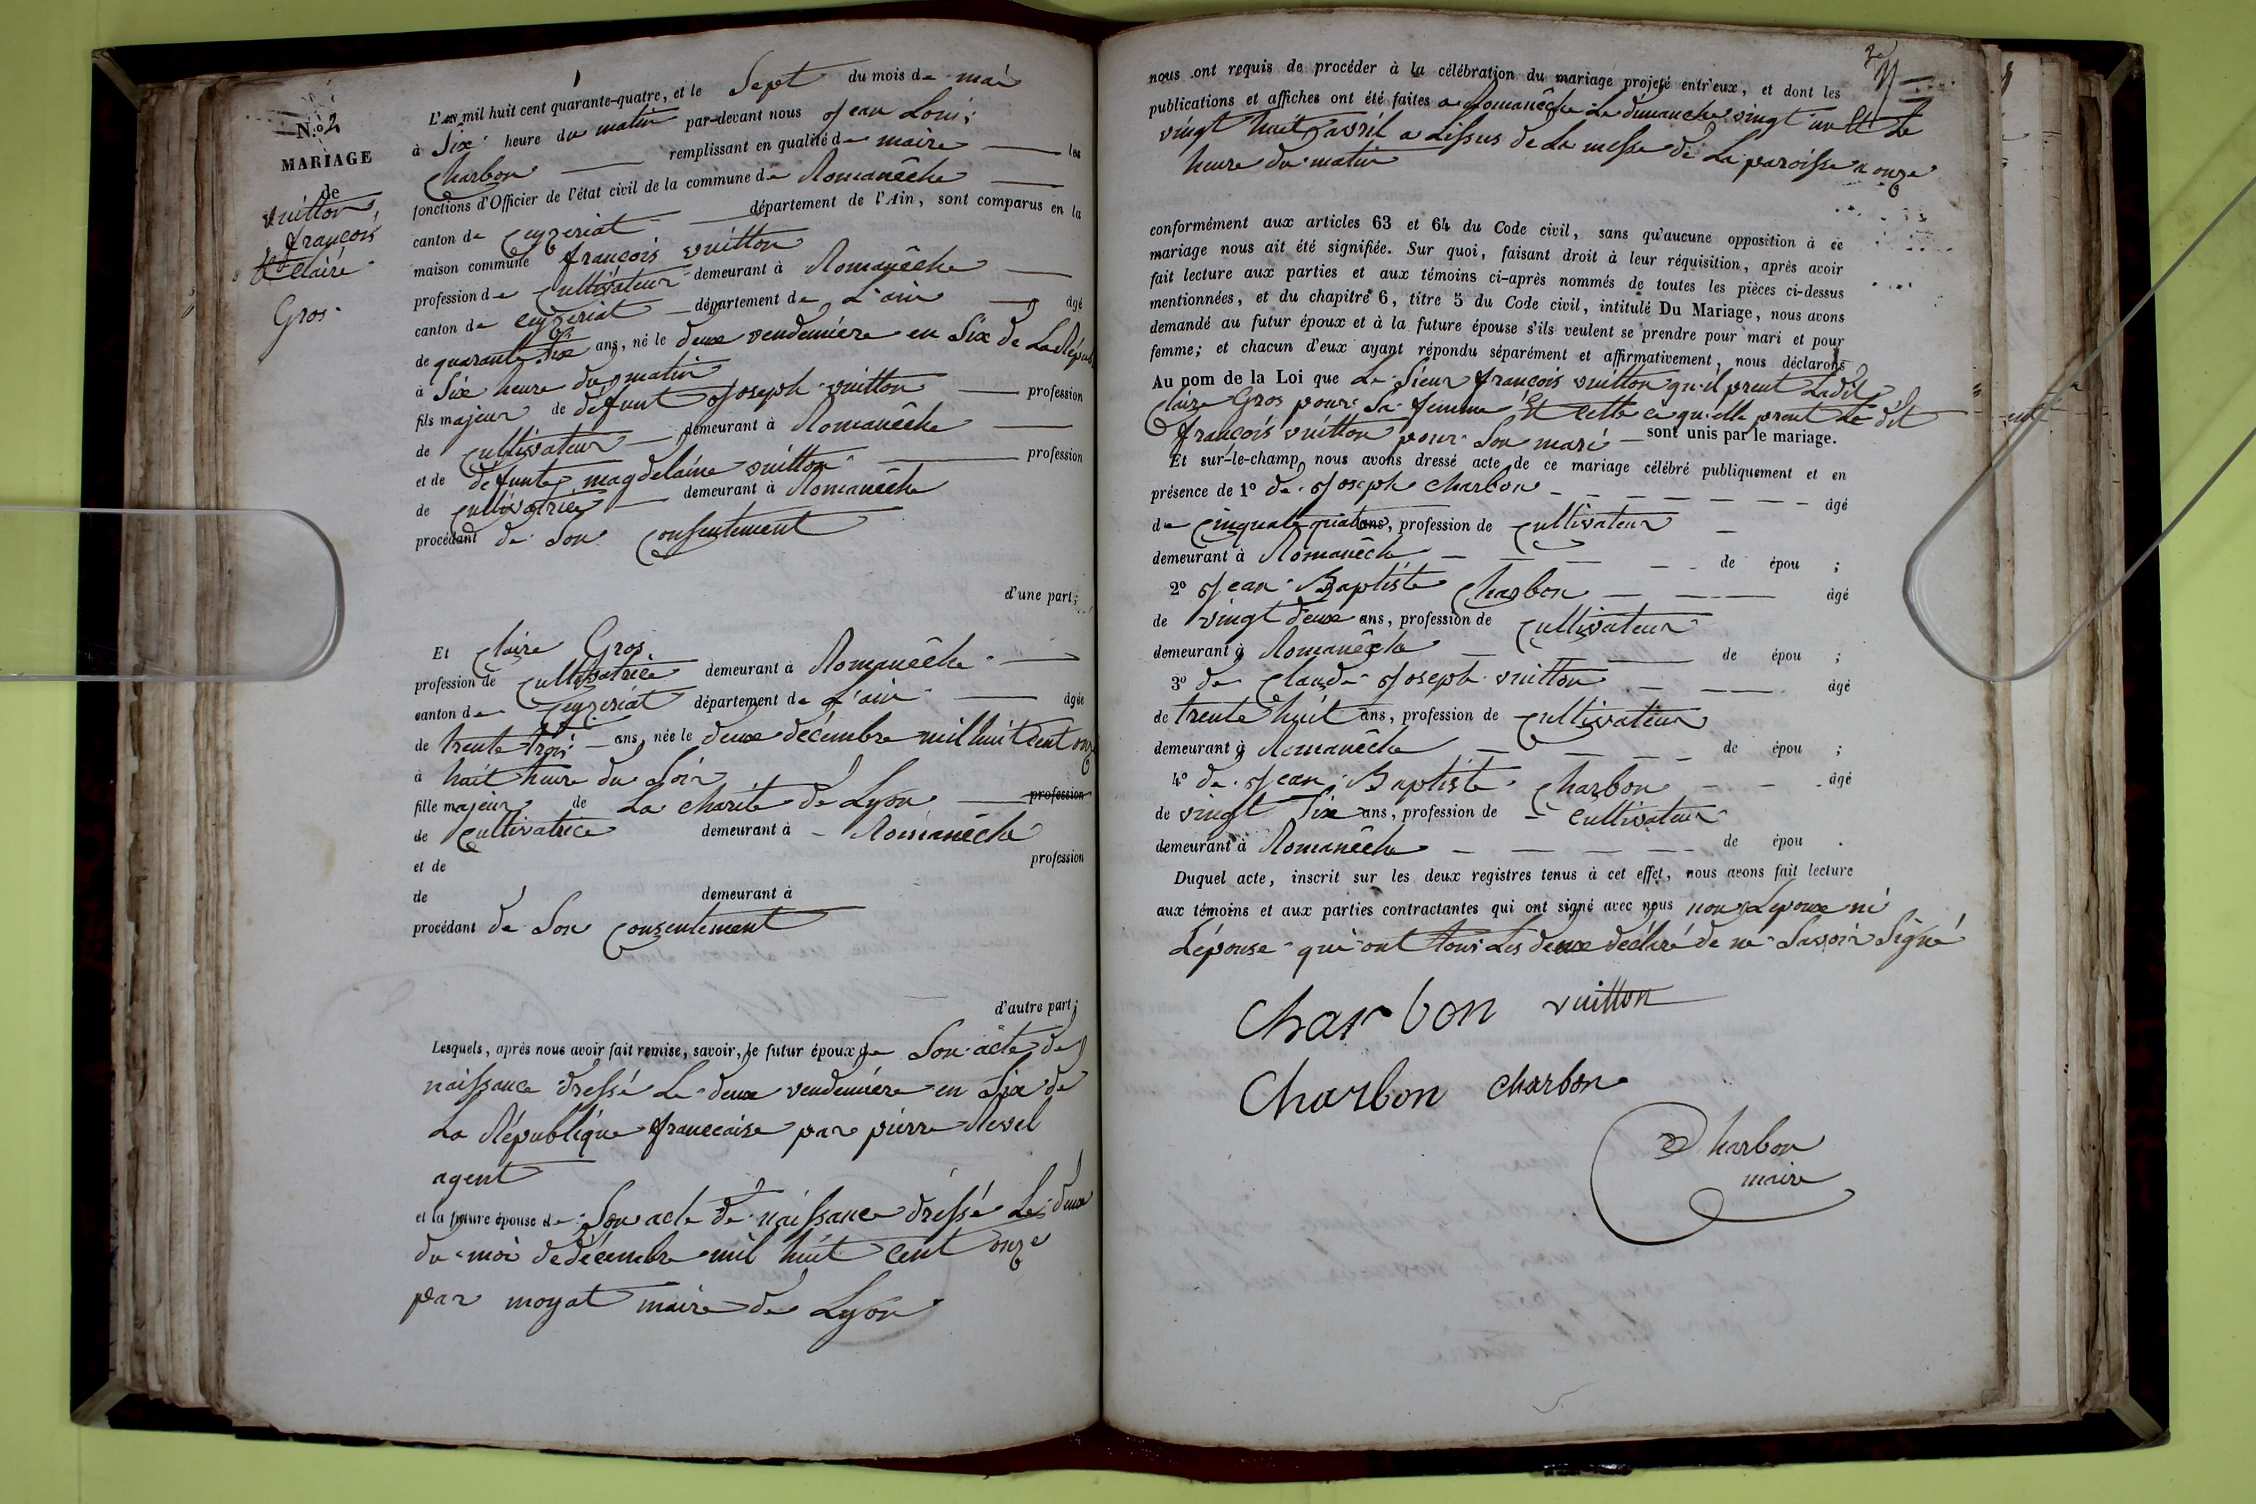 N.º 2
MARIAGE
de
vuitton
françois
et claire
Gros
L'an mil huit cent quarante-quatre, et le Sept du mois de mai
à Six heure du matin par-devant nous Jean Louis
Charbon remplissant en qualité de maire les
fonctions d'Officier de l'état civil de la commune de Romanêche
canton de Ceyzeriat département de l'Ain, sont comparus en la
maison commune françois vuitton
profession de Cultivateur demeurant à Romanêche
canton de Ceyzeriat département de L'ain âgé
de quarante Six ans, né le deux vendemiere en Six de La Répub
à Six heure du matin
fils majeur de defunt Joseph vuitton profession
de Cultivateur demeurant à Romanêche
et de defunte magdelaine vuitton profession
de Cultivatrice demeurant à Romanêche
procédant de Son Consentement
d'une part;
Et Claire Gros
profession de Cultivatrice demeurant à Romanêche
canton de Ceyzeriat département de L'ain âgée
de trente trois ans, née le deux décembre mil huit Cent onze
à huit heure du Soir
fille majeur de La charité de Lyon profession
de Cultivatrice demeurant à Romanêche
et de profession
de demeurant à
procédant de Son Consentement
d'autre part;
Lesquels, après nous avoir fait remise, savoir, le futur époux de Son acte de
naissance dressé Le deux vendemiere en Six de
La République francaise par pierre Revel
agent
et la future épouse de Son acte de naissance dressé Le deux
du moi de décembre mil huit Cent onze
par moyat maire de Lyon
nous ont requis de procéder à la célébration du mariage projeté entr'eux, et dont les
publications et affiches ont été faites a Romanêche Le dimanche vingt un et Le
vingt huit avril a Lissus de La messe de La paroisse a onze
heure du matin
conformément aux articles 63 et 64 du Code civil, sans qu'aucune opposition à ce
mariage nous ait été signifiée. Sur quoi, faisant droit à leur réquisition, après avoir
fait lecture aux parties et aux témoins ci-après nommés de toutes les pièces ci-dessus
mentionnées, et du chapitre 6, titre 5 du Code civil, intitulé Du Mariage, nous avons
demandé au futur époux et à la future épouse s'ils veulent se prendre pour mari et pour
femme; et chacun d'eux ayant répondu séparément et affirmativement, nous déclarons
Au nom de la Loi que Le Sieur françois vuitton qu'il prent Ladit
Claire Gros pour Sa femme Et Cette ci qu'elle prent Le dit
françois vuitton pour Son mari sont unis par le mariage.
Et sur-le-champ nous avons dressé acte de ce mariage célébré publiquement et en
présence de 1º de Joseph Charbon âgé
de Cinquate quat ans, profession de Cultivateur
demeurant à Romanêche de épou ;
2º Jean Baptiste Charbon âgé
de vingt deux ans, profession de Cultivateur
demeurant à Romanêche de épou ;
3º de Claude Joseph vuitton âgé
de trente huit ans, profession de Cultivateur
demeurant à Romanêche de épou ;
4º de Jean Baptiste Charbon âgé
de vingt Six ans, profession de Cultivateur
demeurant à Romanêche de épou .
Duquel acte, inscrit sur les deux registres tenus à cet effet, nous avons fait lecture
aux témoins et aux parties contractantes qui ont signé avec nous non Lepoux ni
Lépouse qui ont tous Les deux déclaré de ne Savoir Signé
Charbon vuitton
Charbon charbon
Charbon
maire